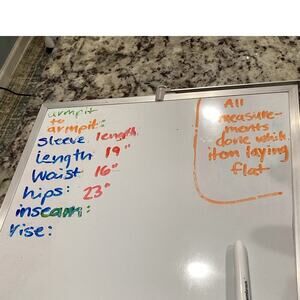 armpit
to
armpit:
sleeve length
length 19"
Waist 16"
hips: 23"
inseam:
rise:
All
measure-
ments
done while
item laying
flat